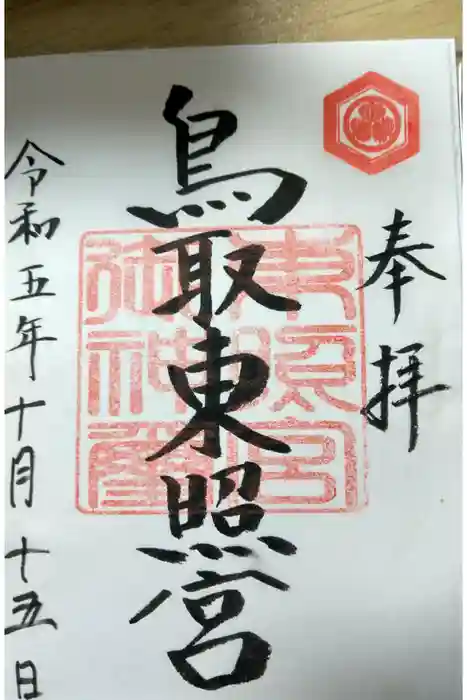 奉拝
鳥取東照宮
東照宮
御神璽
令和五年十月十五日